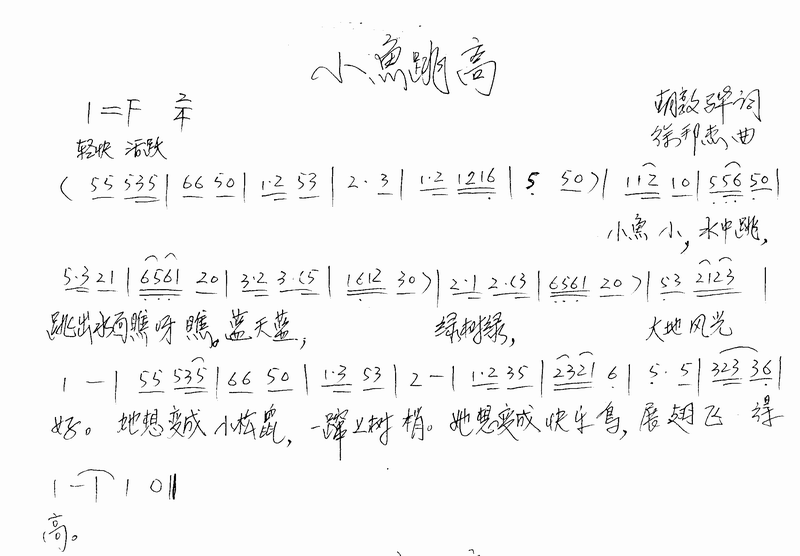 小魚跳高
1=F 2/4
胡敦驿词
轻快 活跃
徐邦杰曲
( 55 535 | 66 50 | 1·2 53 | 2· 3 | 1·2 1216 | 5 50) | 112 10 | 556 50 |
小魚小,水中跳,
5·3 21 | 6561 20 | 3·2 3·(5 | 1612 30) | 2·1 2·(3 | 6561 20) | 53 2123 |
跳出水面瞧呀瞧。蓝天蓝, 绿树绿, 大地风光
1 — | 55 535 | 66 50 | 1·3 53 | 2 — | 1·2 35 | 2321 6 | 5· 5 | 323 36 |
好。她想变成小松鼠,一蹿上树梢。她想变成快乐鸟,展翅飞 得
1 — | 1 0 ‖
高。